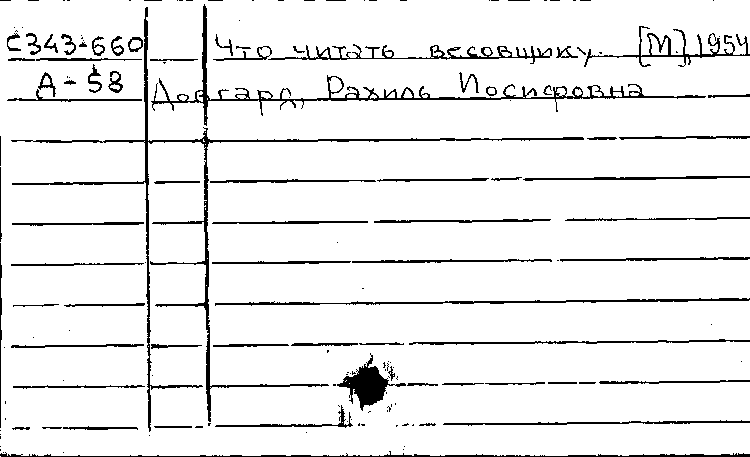 С343-660 Что читать весовщику. [М], 1954
А-58 Довгард, Рахиль Иосифовна